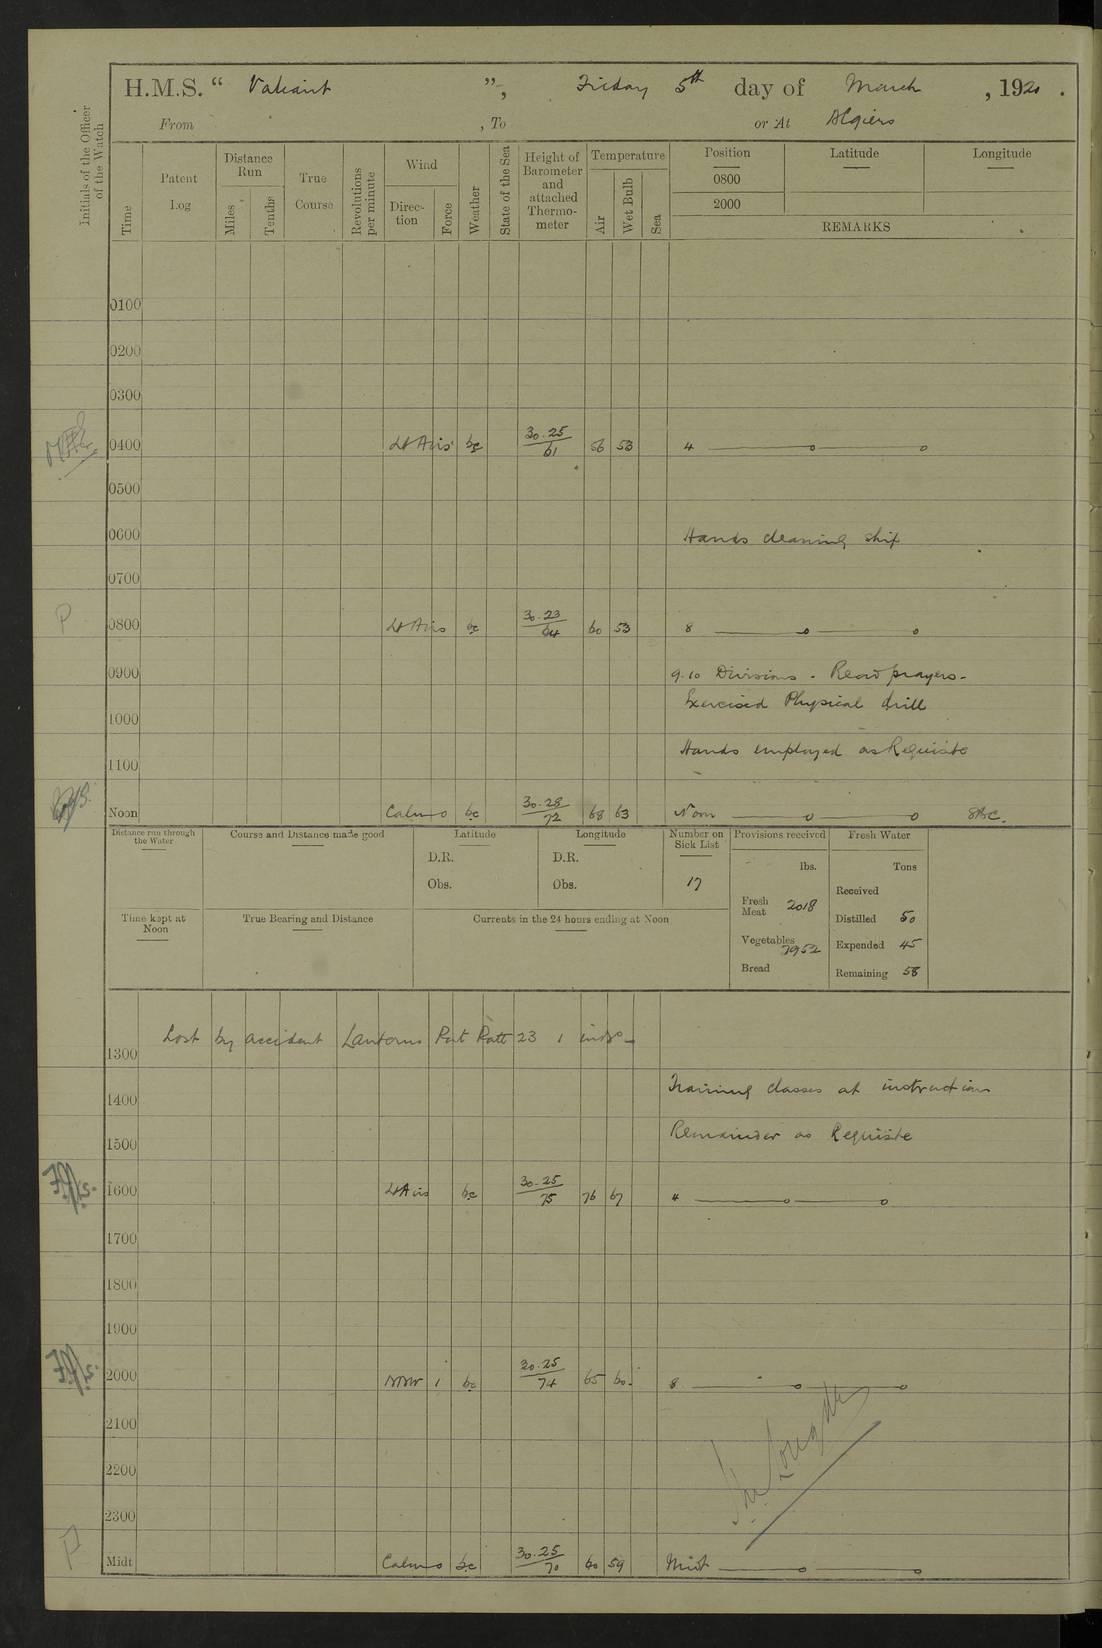 H.M.S. “ Valiant ”, Friday 5th day of March , 1920 .
From , To or At Algiers
Initials of the Officer of the Watch
Time
Patent Log
Distance Run
Miles
Tenths
True Course
Revolutions per minute
Wind
Direction
Force
Weather
State of the Sea
Height of Barometer and attached Thermometer
Temperature
Air
Wet Bulb
Sea
Position
0800
2000
Latitude
Longitude
REMARKS
0100
0200
0300
0400 Lt Airs bc 30.25 61 56 53 4
0500
0600 Hands cleaning ship
0700
P
0800 Lt Airs bc 30.23 64 60 53 8
0900 9.10 Divisions . Read prayers.
Exercised Physical drill
1000
Hands employed as Requisite
1100
Noon Calms bc 30.28 72 68 63 Noon
Distance run through the Water
Course and Distance made good
Latitude
D.R.
Obs.
Longitude
D.R.
Obs.
Number on Sick List
17
Provisions received
lbs.
Fresh Meat 2018
Vegetables 7952
Bread
Fresh Water
Tons
Received
Distilled 50
Expended 45
Remaining 58
Time kept at Noon
True Bearing and Distance
Currents in the 24 hours ending at Noon
Lost by accident Lanterns Port Patt 23 1 in No
1300
Training classes at instruction
1400
Remainder as Requisite
1500
1600 Lt Airs bc 30.25 75 76 67 4
1700
1800
1900
2000 NNW 1 bc 30.25 74 65 60 8
2100
2200
2300
P
Midt Calms bc 30.25 70 60 59 Midt